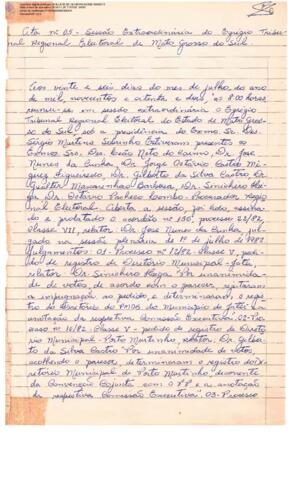 Ata nº 03 - Sessão Extraordinária do Egrégio Tribu-
nal Regional Eleitoral de Mato Grosso do Sul.
Aos vinte e seis dias do mês de julho, do ano
de mil, novecentos e oitenta e dois, às 8:00 horas
reuniu-se em sessão extraordinária o Egrégio
Tribunal Regional Eleitoral do Estado de Mato Gros-
so do Sul, sob a presidência do Exmo. Sr. Des.
Sérgio Martins Sobrinho. Estiveram presentes os
Exmos. Srs. Des. Leão Neto do Carmo, Dr. José
Nunes da Cunha, Dr. Jorge Octávio Cast
Figueiredo, Dr. Gilberto da Silva Castro, Dr.
Barbosa, Dr.
Dr. Octávio Pacheco Lomba - Procurador Regio-
nal Eleitoral. Aberta a sessão, foi lido,
e o acórdão nº 130, processo 23/82,
Classe VII, relator Dr. José Nunes da Cunha, jul-
gado na sessão plenária de de julho de 1982.
Julgamentos: 01 - Processo nº 12/82 - Classe V, pedi-
do de registro de Diretório Municipal
relator Dr. "Por unanimida-
de de votos, de acordo com o parecer, rejeitaram
a impugnação ao pedido, e determinaram o regis-
tro do Diretório do PMDB do Município de e a
anotação da respectiva Comissão Executiva". 02 - Pro-
cesso nº 10/82 - Classe V - pedido de registro de Diretó-
rio Municipal - Porto Murtinho, relator: Dr. Gilber-
to da Silva Castro "Por unanimidade de votos,
acolhendo o parecer, determinaram o registro do Di-
retório Municipal de Porto Murtinho, decorrente
da Convenção Conjunta com o PP e a anotação
da respectiva Comissão Executiva". 03 - Processo